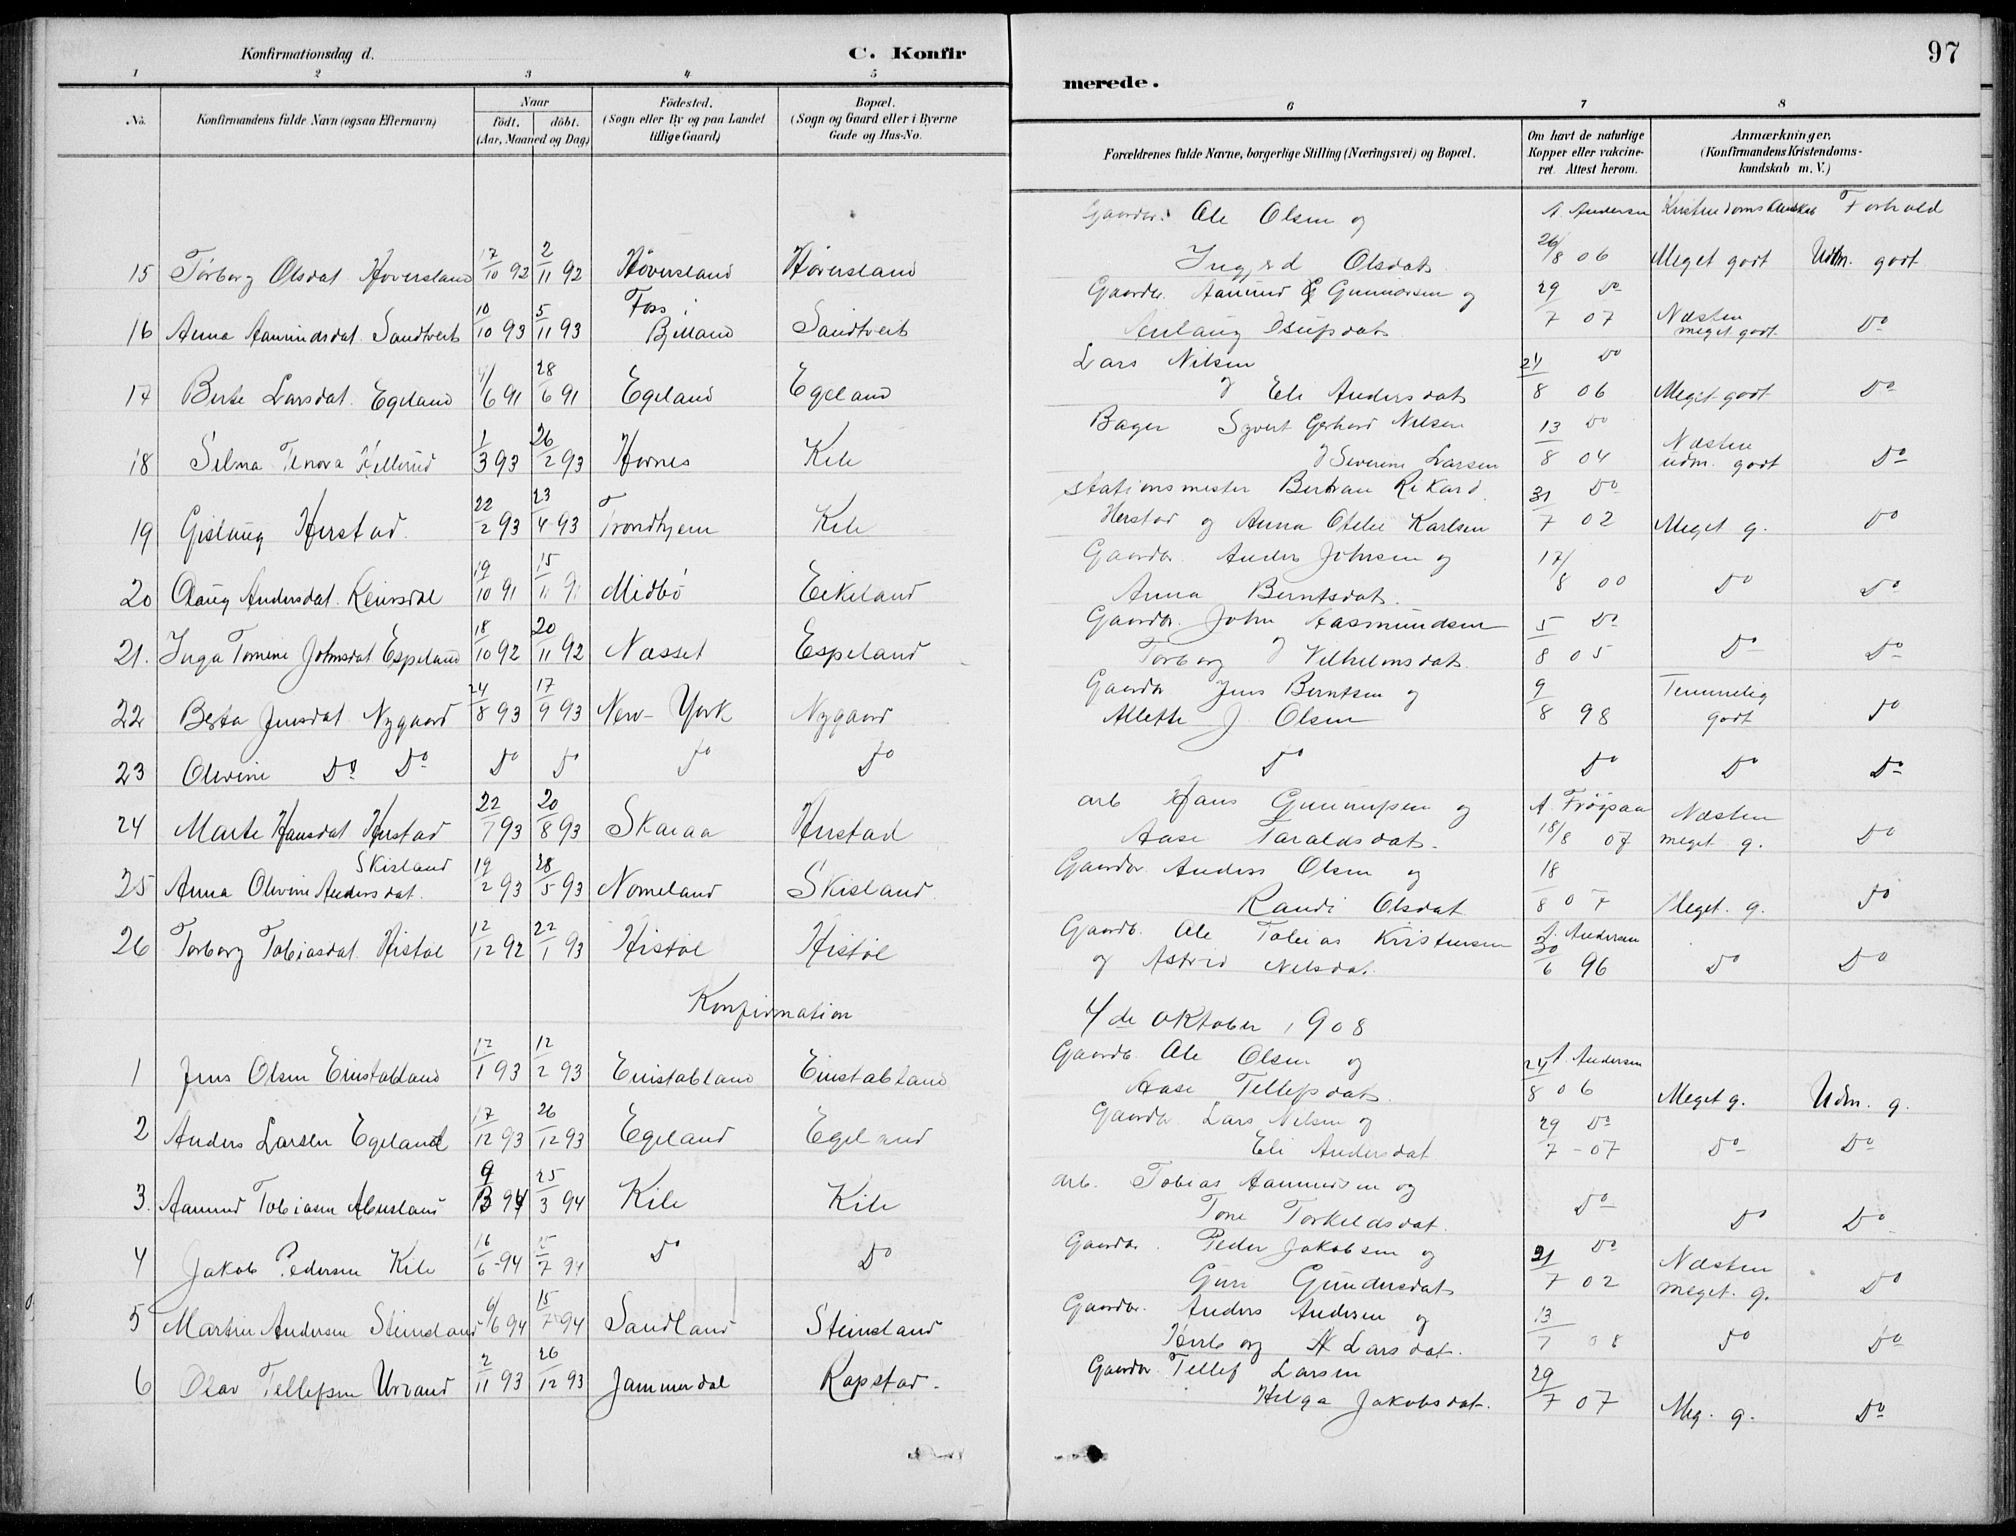 Konfirmationsdag d.
C. Konfirmerede.
97
1 2 3 4 5 6 7 8
No.
Konfirmandens fulde Navn (ogsaa Efternavn)
Naar
födt. döbt.
(Aar, Maaned og Dag)
Födested.
(Sogn eller By og paa Landet
tillige Gaard)
Bopæl.
(Sogn og Gaard eller i Byerne
Gade og Hus-No.
Forældrenes fulde Navne, borgerlige Stilling (Næringsvei) og Bopæl.
Om havt de naturlige
Kopper eller vakcine-
ret. Attest herom.
Anmærkninger.
(Konfirmandens Kristendoms-
kundskab m. V.)
Gaardbr. Ole Olsen og A. Andersen Kristendomskundskab Forhold
15 Torborg Olsdat. Hoversland 17/10 92 2/11 92 Höversland Höversland Ingjerd Olsdat. 26/8 06 Meget godt Udm. godt
Gaardbr. Aamund G Gunnarsen og 29 Do
16 Anna Aamundsdat. Sandtveit 10/10 93 5/11 93 Foss i Bjelland Sandtveit Aslaug Isupsdat. 7 07 Næsten meget godt Do
Lars Nilsen 24 Do
17 Berte Larsdat. Egeland 4/6 91 28/6 91 Egeland Egeland og Eli Andersdat. 8 06 Meget godt Do
Bager Syvert Gerhard Nilsen 13 Do
18 Selma Tenora Hellerud 1/3 93 26/2 93 Hornes Kile og Severine Larsen 8 04 Næsten udm. godt Do
Stationsmester Bertran Rikard 31 Do
19 Gislaug Herstad. 22/2 93 23/4 93 Trondhjem Kile Herstad og Anna Otelie Karlsen 7 02 Meget g. Do
Gaardbr. Anders Johnsen og 17/
20 Olaug Andersdat. Reinsdal 19/10 91 15/11 91 Midbö Eikeland Anna Berntsdat. 8 00 Do Do
Gaardbr. John Aasmundsen 5 Do
21. Inga Tomine Johnsdat Espeland 18/10 92 20/11 92 Nasset Espeland Torborg og Vilhelmsdat. 8 05 Do Do
Gaardbr Jens Berntsen og 9 Temmelig
22 Berta Jensdat Nygaard 24/8 93 17/9 93 New-York Nygaard Allette J Olsen 8 98 godt Do
23 Olevine Do Do Do Do Do Do Do Do Do Do
arb Hans Gunnufsen og A. Fröysaa Næsten
24 Marte Hansdat Herstad 22/7 93 20/8 93 Skaraa Herstad Aase Taraldsdat. 18/8 07 meget g. Do
Skisland Gaardbr. Anders Olsen og 18
25 Anna Olevine Andersdat. 19/2 93 28/5 93 Nomeland Skisland Randi Olsdat 8 07 Meget. g. Do
Gaardb. Ole Tobias Kristensen A. Andersen
26 Torborg Tobiasdat. Histöl 12/12 92 22/1 93 Histöl Histöl og Astrid Nilsdat. 30/6 96 Do Do
Konfirmation 4de oktober 1908
Gaardb. Ole Olsen og A. Andersen
1 Jens Olsen Einstabland 12/1 93 12/2 93 Einstabland Einstabland Aase Tellefsdat. 24/8 06 Meget g. Udm. g.
Gaardbr. Lars Nilsen og 29 Do
2 Anders Larsen Egeland 17/12 93 26/12 93 Egeland Egeland Eli Andersdat 7-07 Do Do
arb. Tobias Aamundsen og
3. Aamund Tobiasen Abusland 9/3 94 25/3 94 Kile Kile Tone Torkeldsdat. Do Do Do
Gaardbr. Peder Jakobsen og Do Næsten
4 Jakob Pedersen Kile 16/6-94 15/7 94 Do Do Guri Gundersdat. 31/7 02 meget. g. Do
Gaardbr. Anders Andersen og 13
5 Martin Andersen Steinsland 6/6 94 15/7 94 Sandland Steinsland Torborg A Larsdat. 7 08 Do Do
Gaardbr. Tellef Larsen 29
6 Olav Tellefsen Urvand 2/11 93 26/12 93 Jammerdal Rapstad. Helga Jakobsdat. 7 07 Meg. g. Do